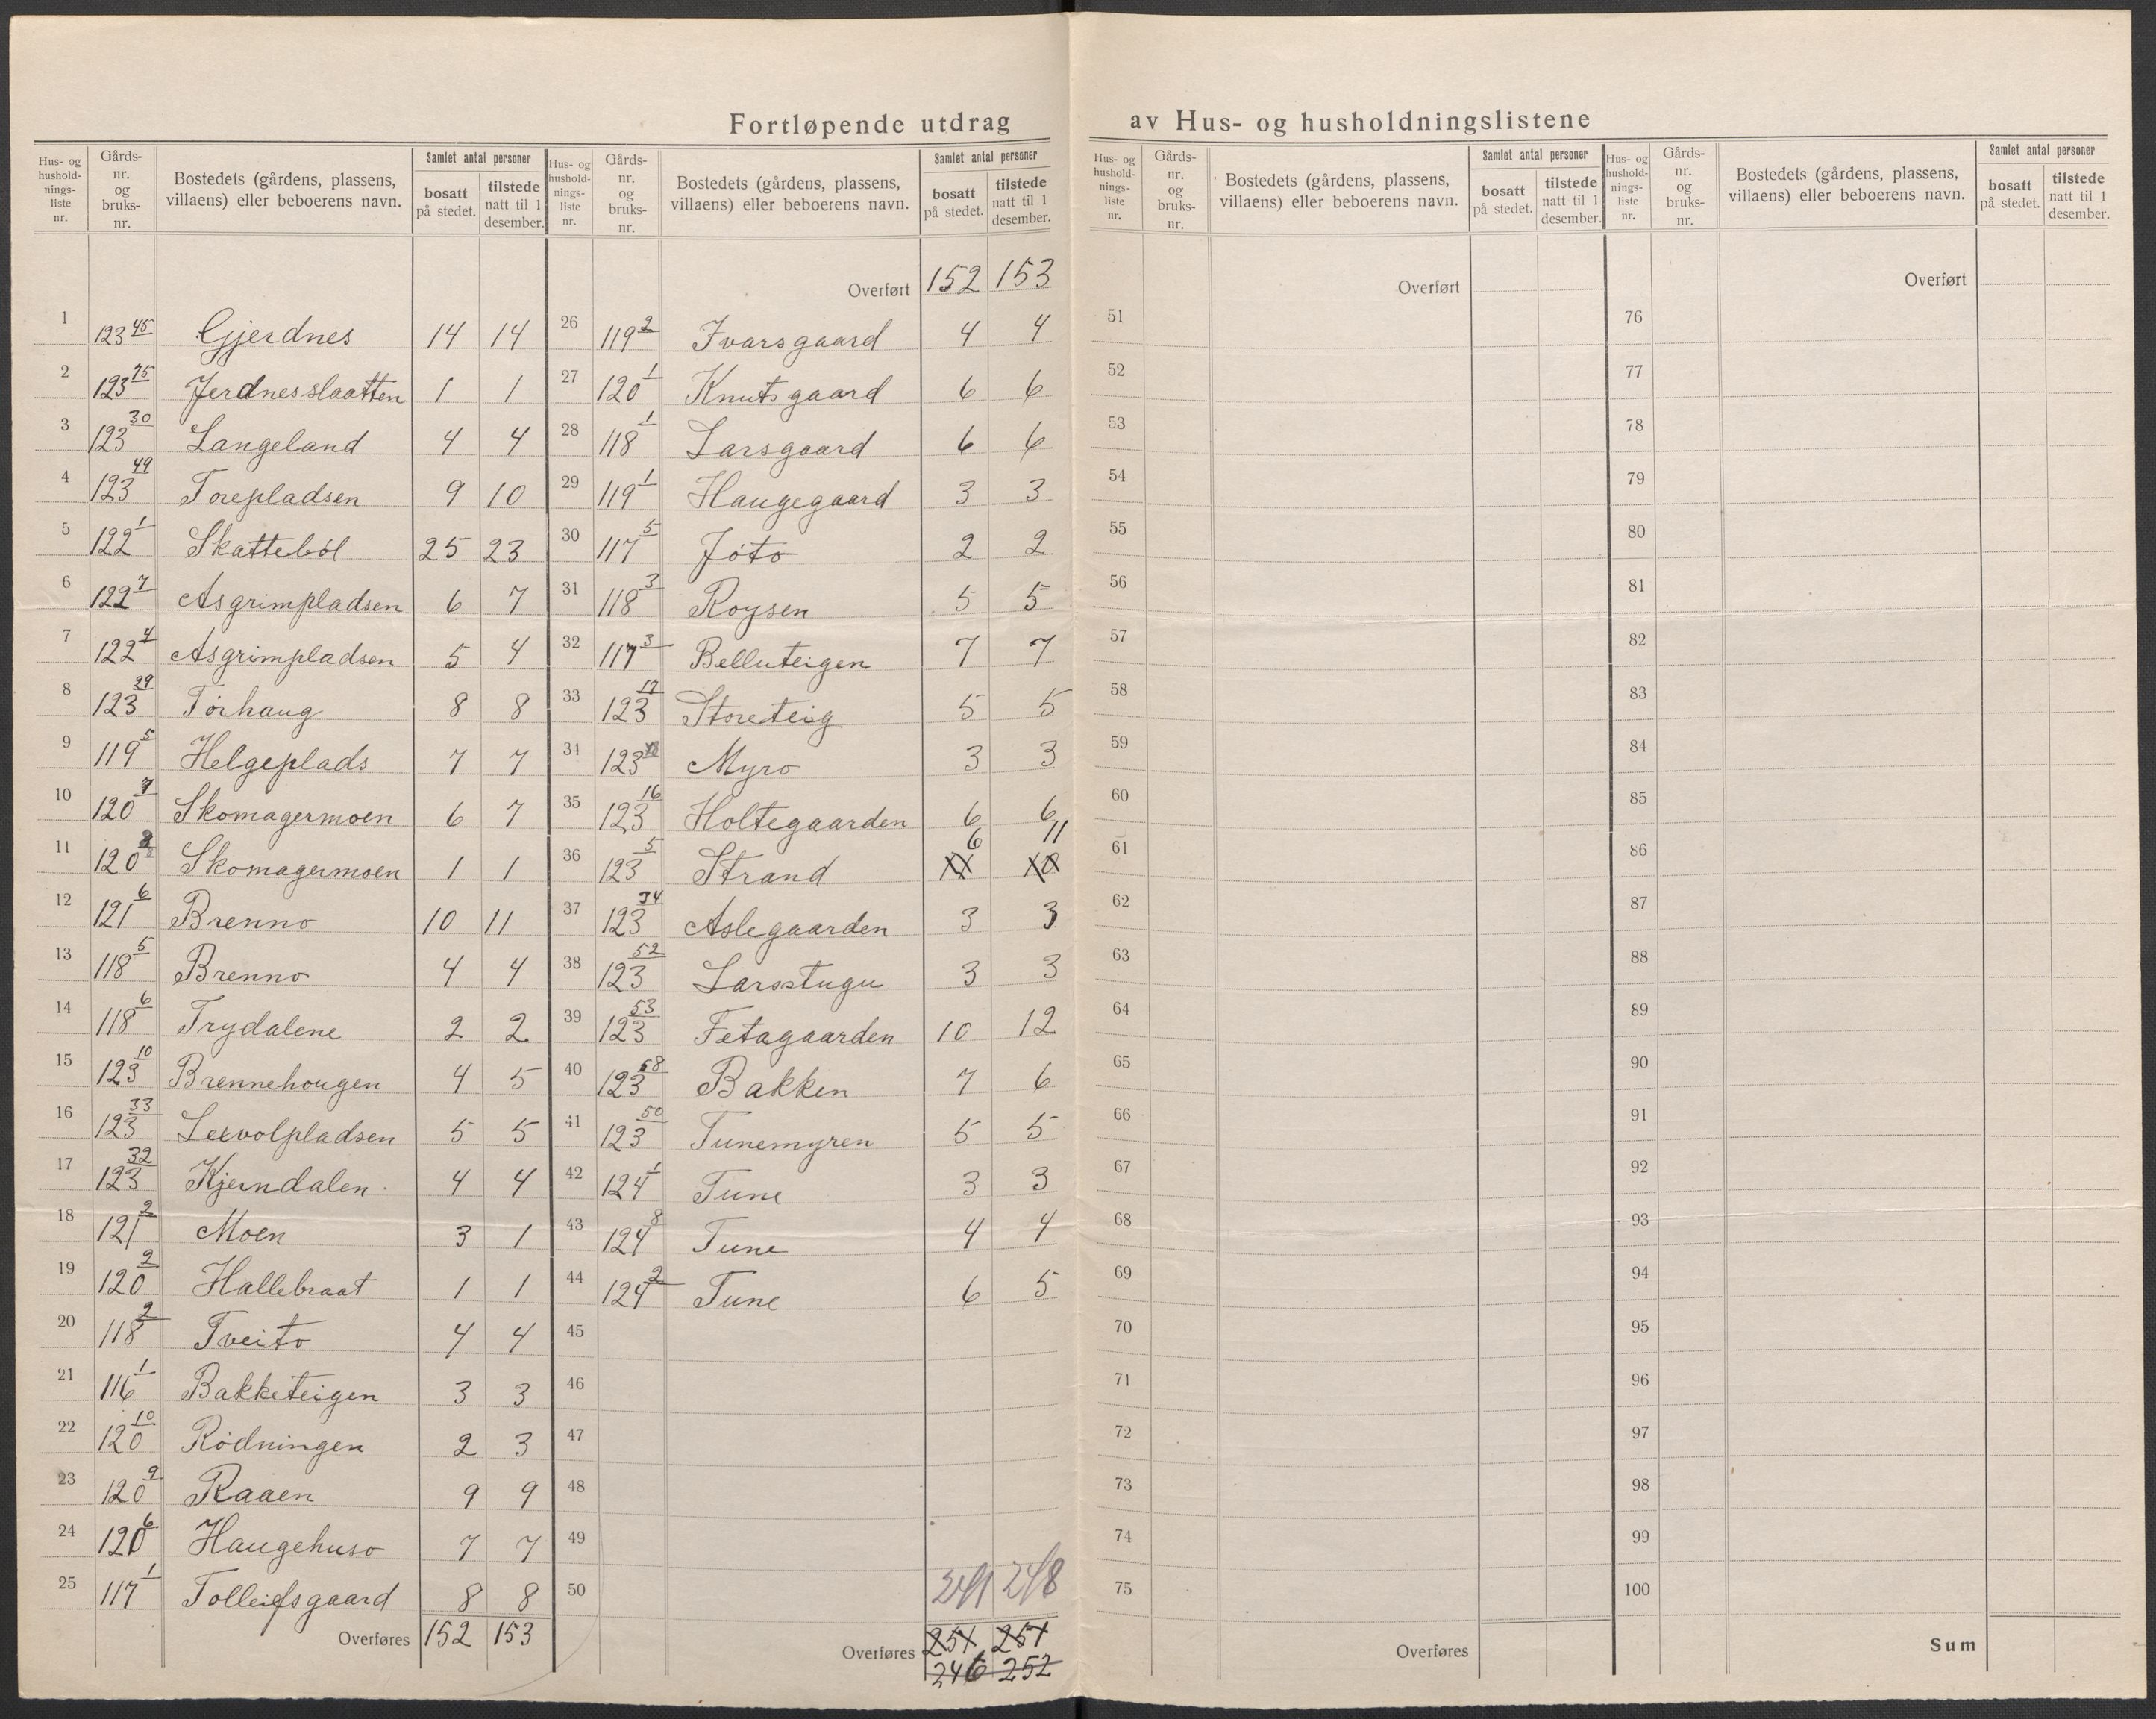 Fortløpende utdrag av Hus- og husholdningslistene
Hus- og hushold-nings-liste nr. | Gårds-nr. og bruks-nr. | Bostedets (gårdens, plassens, villaens) eller beboerens navn. | Samlet antal personer | bosatt på stedet. | tilstede natt til 1 desember.
1 | 123 45 | Gjerdnes | 14 | 14
2 | 123 75 | Jerdnesslaatten | 1 | 1
3 | 123 30 | Langeland | 4 | 4
4 | 123 49 | Torepladsen | 9 | 10
5 | 122 1 | Skattebøl | 25 | 23
6 | 122 7 | Asgrimpladsen | 6 | 7
7 | 122 4 | Asgrimpladsen | 5 | 4
8 | 123 29 | Torhaug | 8 | 8
9 | 119 5 | Helgeplads | 7 | 7
10 | 120 7 | Skomagermoen | 6 | 7
11 | 120 8 | Skomagermoen | 1 | 1
12 | 121 6 | Brenno | 10 | 11
13 | 118 5 | Brenno | 4 | 4
14 | 118 6 | Trydalene | 2 | 2
15 | 123 10 | Brennehougen | 4 | 5
16 | 123 33 | Leevolpladsen | 5 | 5
17 | 123 32 | Kjerndalen | 4 | 4
18 | 121 2 | Moen | 3 | 1
19 | 120 2 | Hallebraat | 1 | 1
20 | 118 2 | Tveito | 4 | 4
21 | 116 1 | Bakketeigen | 3 | 3
22 | 120 10 | Rødningen | 2 | 3
23 | 120 9 | Raaen | 9 | 9
24 | 120 6 | Haugehuso | 7 | 7
25 | 117 1 | Tolleifsgaard | 8 | 8
Overføres 152 153
Hus- og hushold-nings-liste nr. | Gårds-nr. og bruks-nr. | Bostedets (gårdens, plassens, villaens) eller beboerens navn. | Samlet antal personer | bosatt på stedet. | tilstede natt til 1 desember.
Overført 152 153
26 | 119 2 | Ivarsgaard | 4 | 4
27 | 120 1 | Knutsgaard | 6 | 6
28 | 118 1 | Larsgaard | 6 | 6
29 | 119 1 | Haugegaard | 3 | 3
30 | 117 5 | Jøto | 2 | 2
31 | 118 3 | Roysen | 5 | 5
32 | 117 3 | Belluteigen | 7 | 7
33 | 123 12 | Storeteig | 5 | 5
34 | 123 | Myro | 3 | 3
35 | 123 16 | Holtegaarden | 6 | 6
36 | 123 5 | Strand | 6 | 11
37 | 123 34 | Aslegaarden | 3 | 3
38 | 123 52 | Larsstugu | 3 | 3
39 | 123 53 | Fetagaarden | 10 | 12
40 | 123 68 | Bakken | 7 | 6
41 | 123 50 | Tunemyren | 5 | 5
42 | 124 1 | Tune | 3 | 3
43 | 124 8 | Tune | 4 | 4
44 | 124 2 | Tune | 6 | 5
45
46
47
48
49
50
241 248
Overføres 251 251
246 252
Hus- og hushold-nings-liste nr. | Gårds-nr. og bruks-nr. | Bostedets (gårdens, plassens, villaens) eller beboerens navn. | Samlet antal personer | bosatt på stedet. | tilstede natt til 1 desember.
Overført
51
52
53
54
55
56
57
58
59
60
61
62
63
64
65
66
67
68
69
70
71
72
73
74
75
Overføres
Hus- og hushold-nings-liste nr. | Gårds-nr. og bruks-nr. | Bostedets (gårdens, plassens, villaens) eller beboerens navn. | Samlet antal personer | bosatt på stedet. | tilstede natt til 1 desember.
Overført
76
77
78
79
80
81
82
83
84
85
86
87
88
89
90
91
92
93
94
95
96
97
98
99
100
Sum